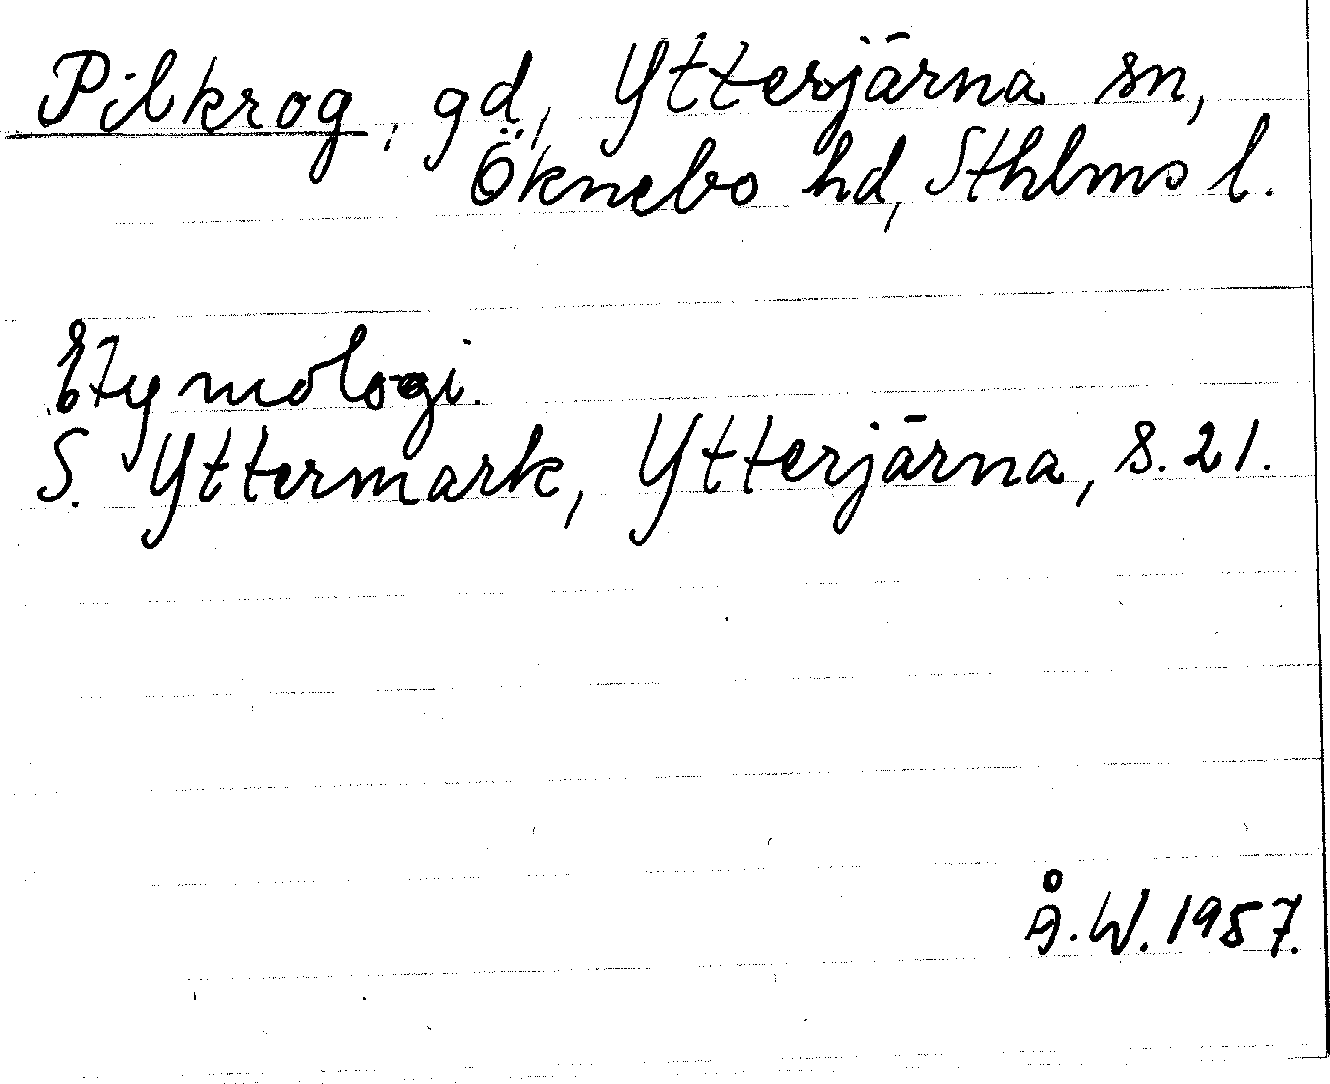 Pilkrog, gd, Ytterjärna sn,
Öknebo hd, Sthlms l.
Etymologi.
S. Yttermark, Ytterjärna, s. 21.
Å.W. 1957.